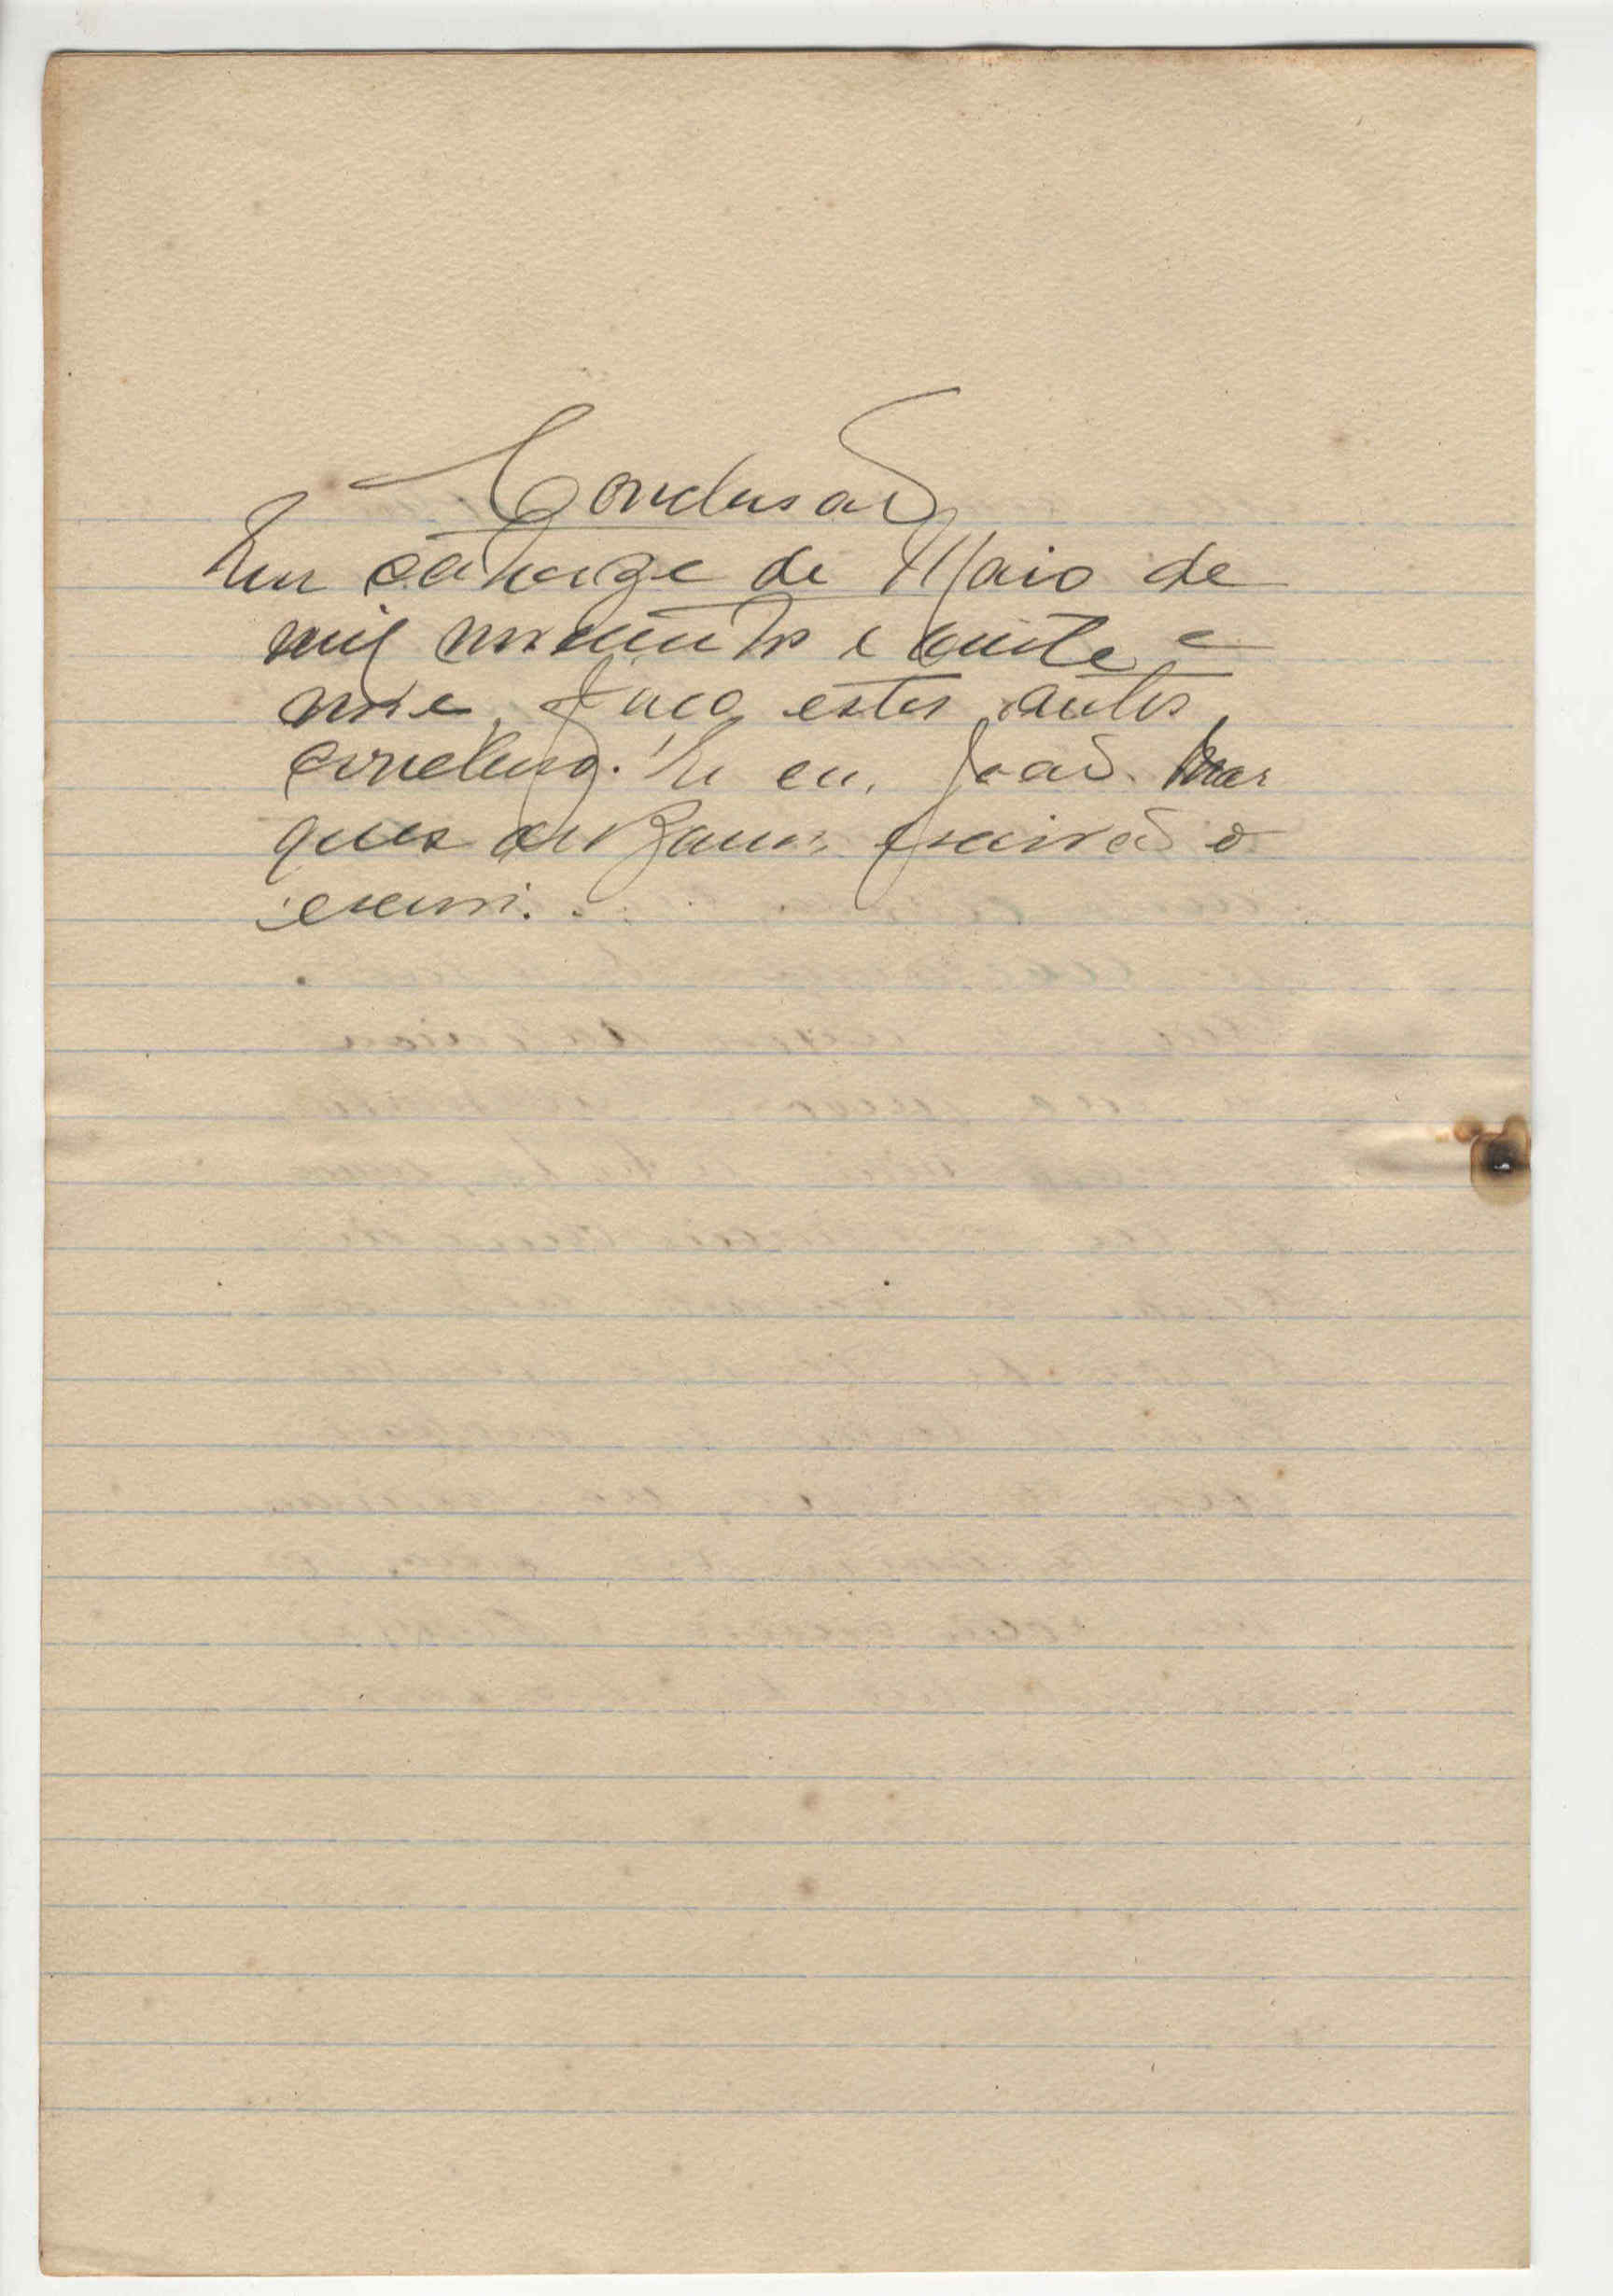 Conclusaõ
Em catorze de Maio de
mil novecentos e vinte e
nove, faço estes autos
conclusos. Eu eu, João Mar
ques de Barros, Escrivaõ o
escrevi.